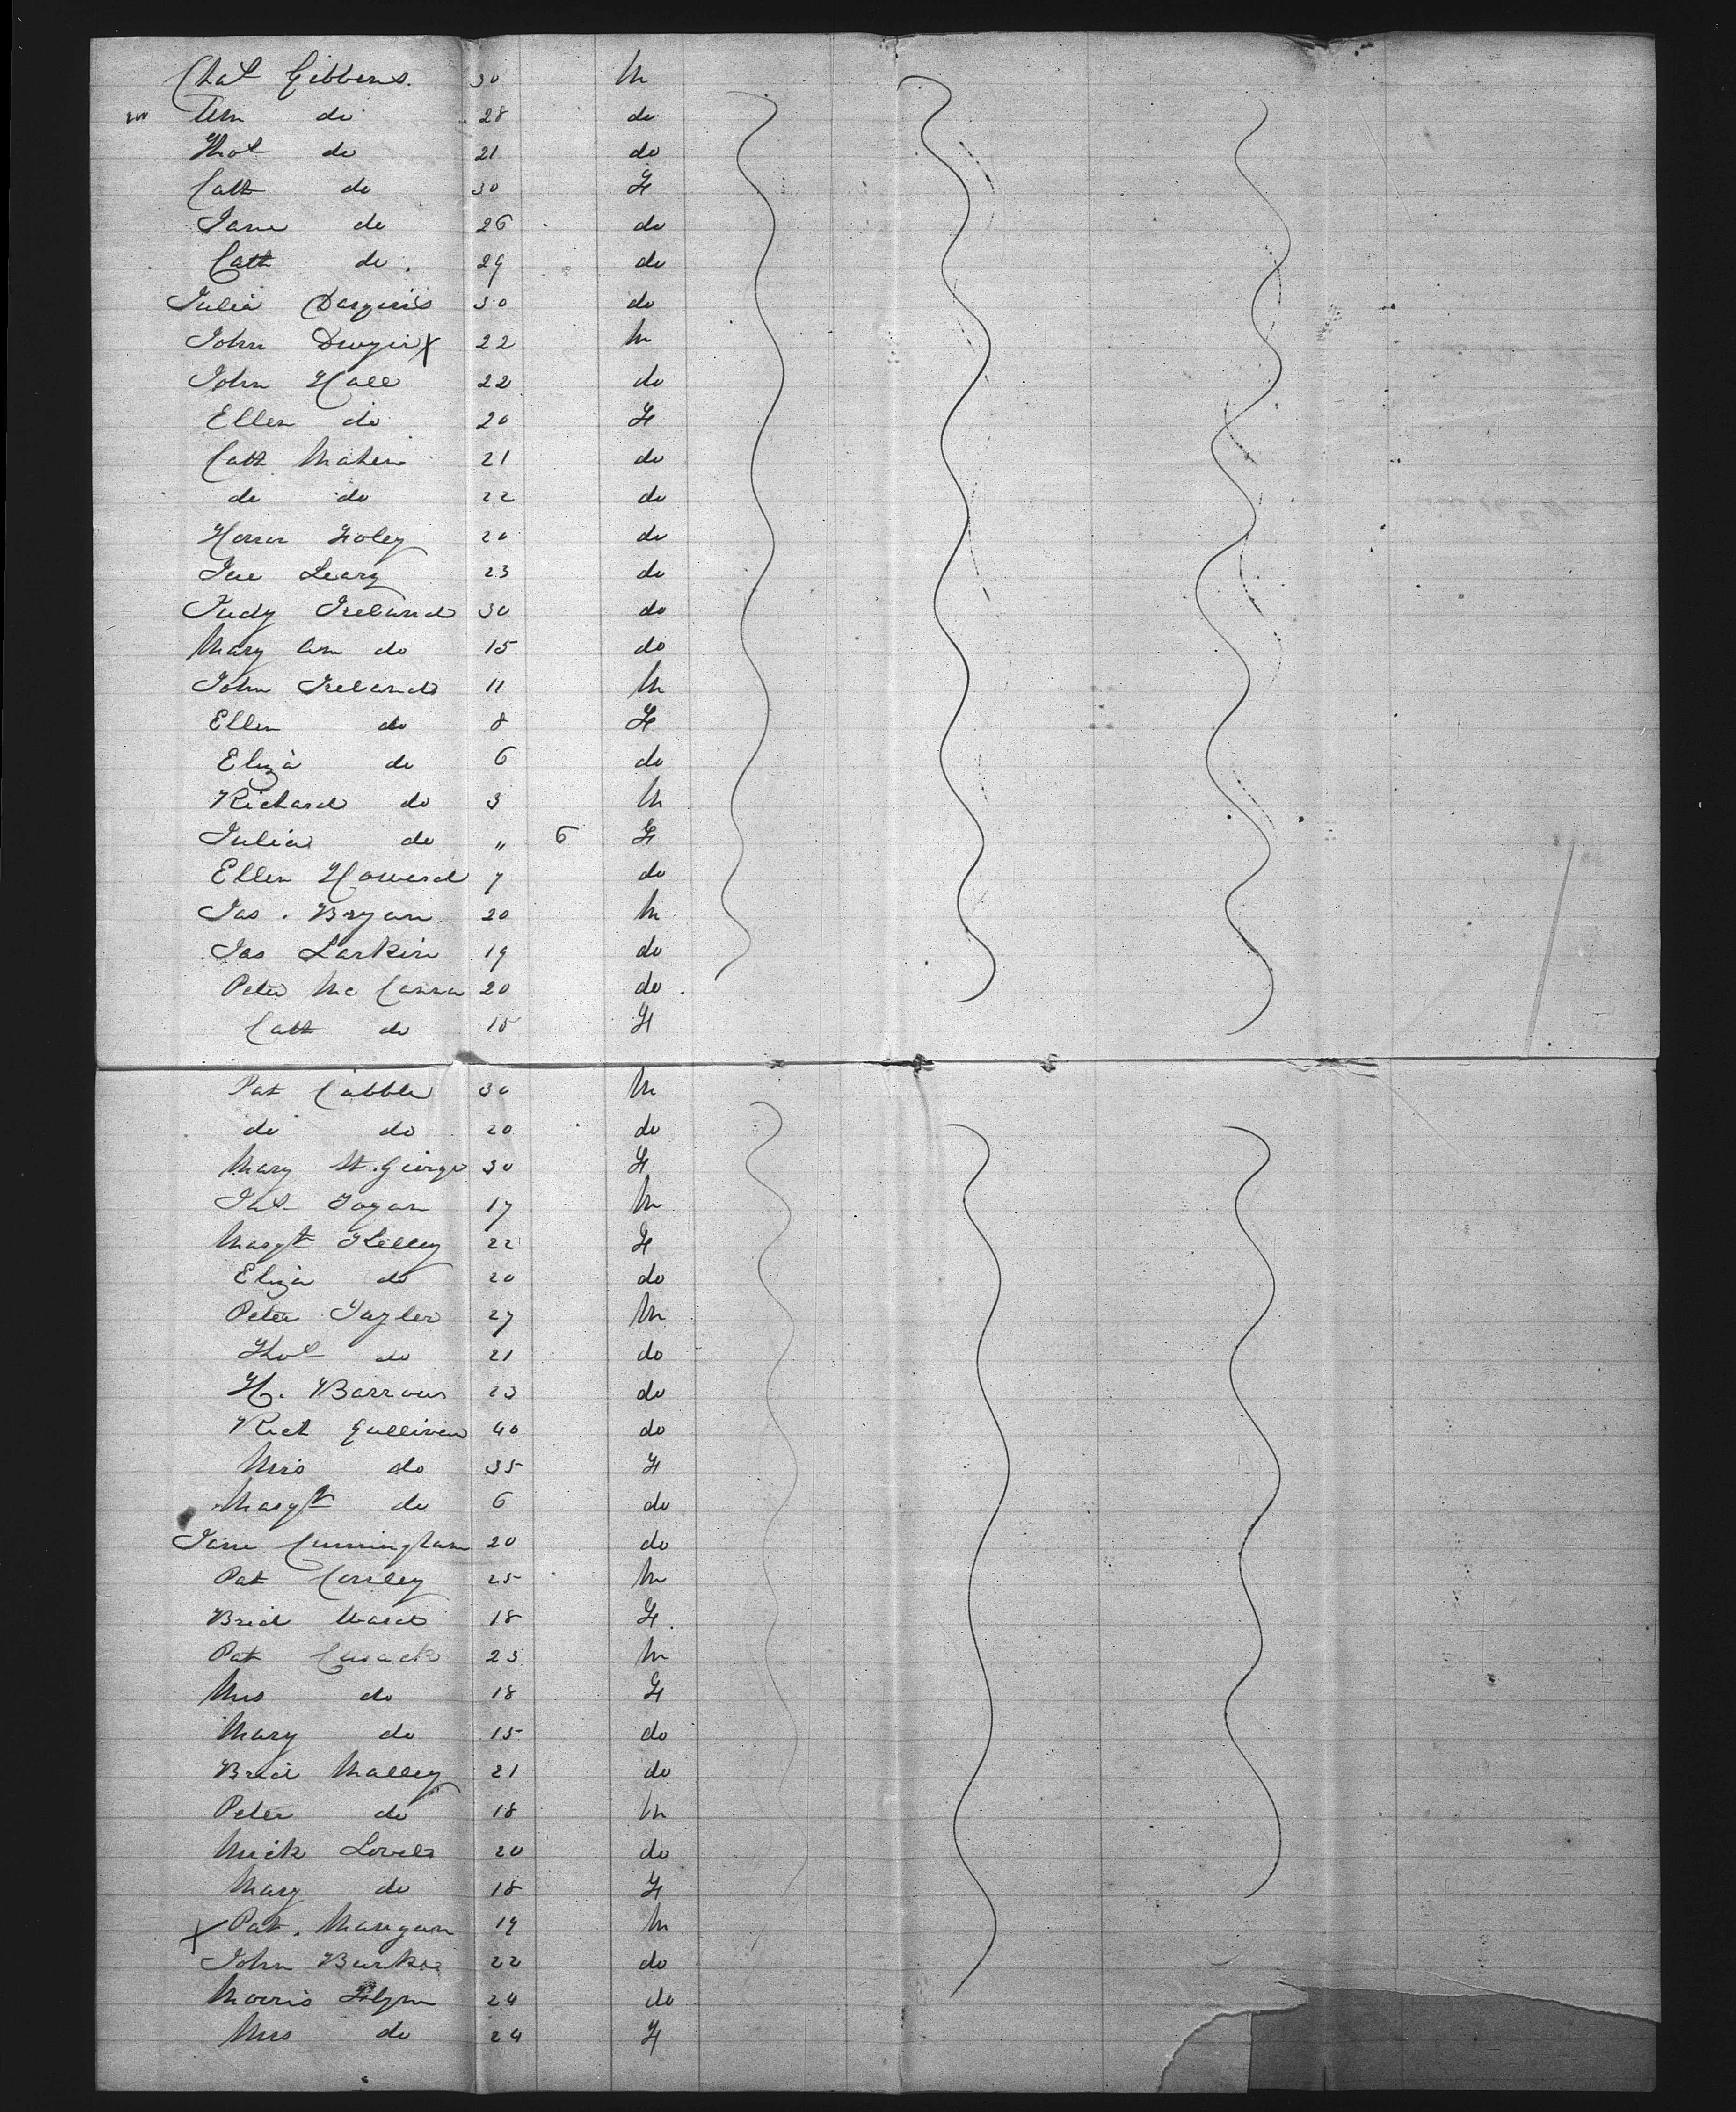 Chas Gibbens. 30 M
Wm do 28 do
Thos do 21 do
Cath do 30 F
Jane do 26 do
Cath do 29 do
Julia 30 do
John Dwyer X 22 M
John Hall 22 do
Ellen do 20 F
Cath Maher 21 do
do do 22 do
Honor Foley 20 do
Leary 23 do
Judy Ireland 30 do
Mary Ann do 15 do
John Ireland 11 M
Ellen do 8 F
Eliza do 6 do
Richard do 3 M
Julia do " 6 F
Ellen Howard 7 do
Jas. Bryan 20 M
Jas Larkin 19 do
Peter Mc Canna 20 do
Cath do 15 F
Pat Cabble 30 M
do do 20 do
Mary St. George 30 F
Fogan 17 M
Margt Kelley 22 F
Eliza do 20 do
Peter Tayler 27 M
Thos do 21 do
H. Barrows 23 do
Rich Gulliver 40 do
Mrs do 35 F
Margt do 6 do
Jane Cunningham 20 do
Pat Conley 25 M
Brid Ward 18 F
Pat Cusack 23 M
Mrs do 18 F
Mary do 15 do
Brid Malley 21 do
Peter do 18 M
Mick 20 do
Mary do 18 F
X Pat. Mangan 19 M
John Burke 22 do
Morris Flynn 24 do
Mrs do 24 F